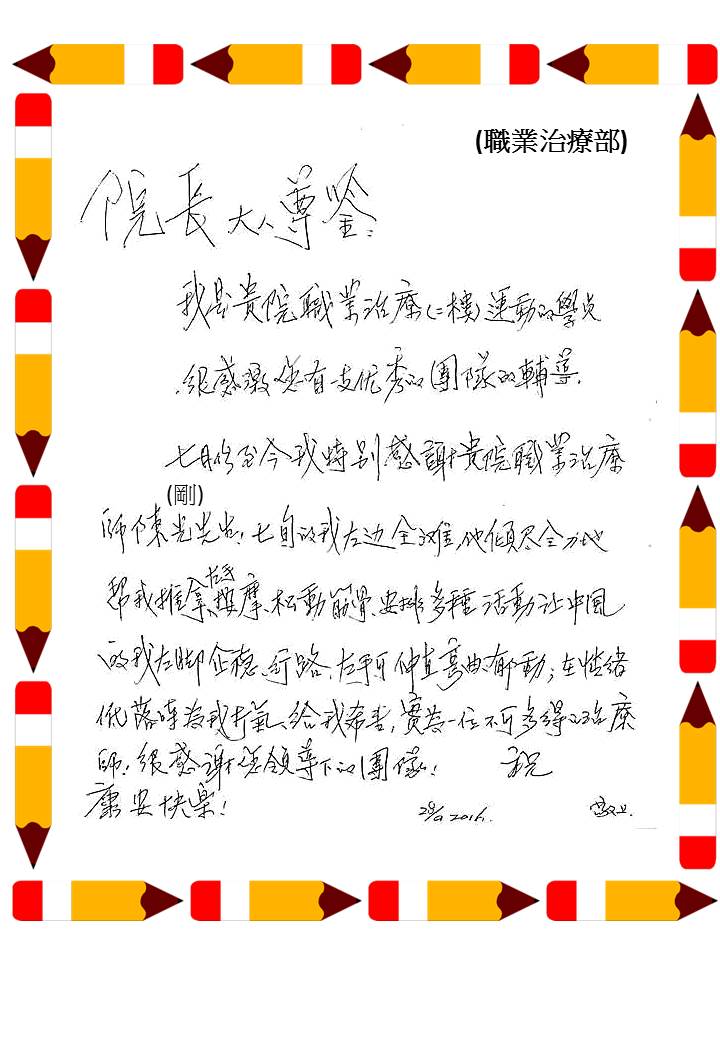 (職業治療部)
院長大人尊鉴:
我是貴院職業治療(二樓)運動的學員
很感激您有一支优秀的團隊的輔導.
七月份至今我特别感謝貴院職業治療
(剛)
師陳光先生,七旬的我左边全难,他傾尽全力地
帮我推拿、按摩、松動筋骨,安排多種活動让中風
的我左脚企穩、行路,左手可伸直弯曲、郁動;在情绪
低落時為我打氣、给我希望,實為一位不可多得的治療
師!很感謝您領導下的團隊! 祝
康安快樂!
28/9 2016.